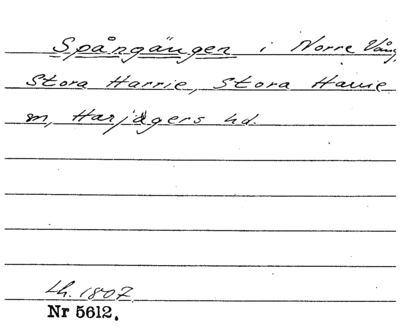 Spångängen i Norre Vång,
Stora Harrie, Stora Harrie
sn, Harjagers hd.
Lh. 1807
Nr 5612.